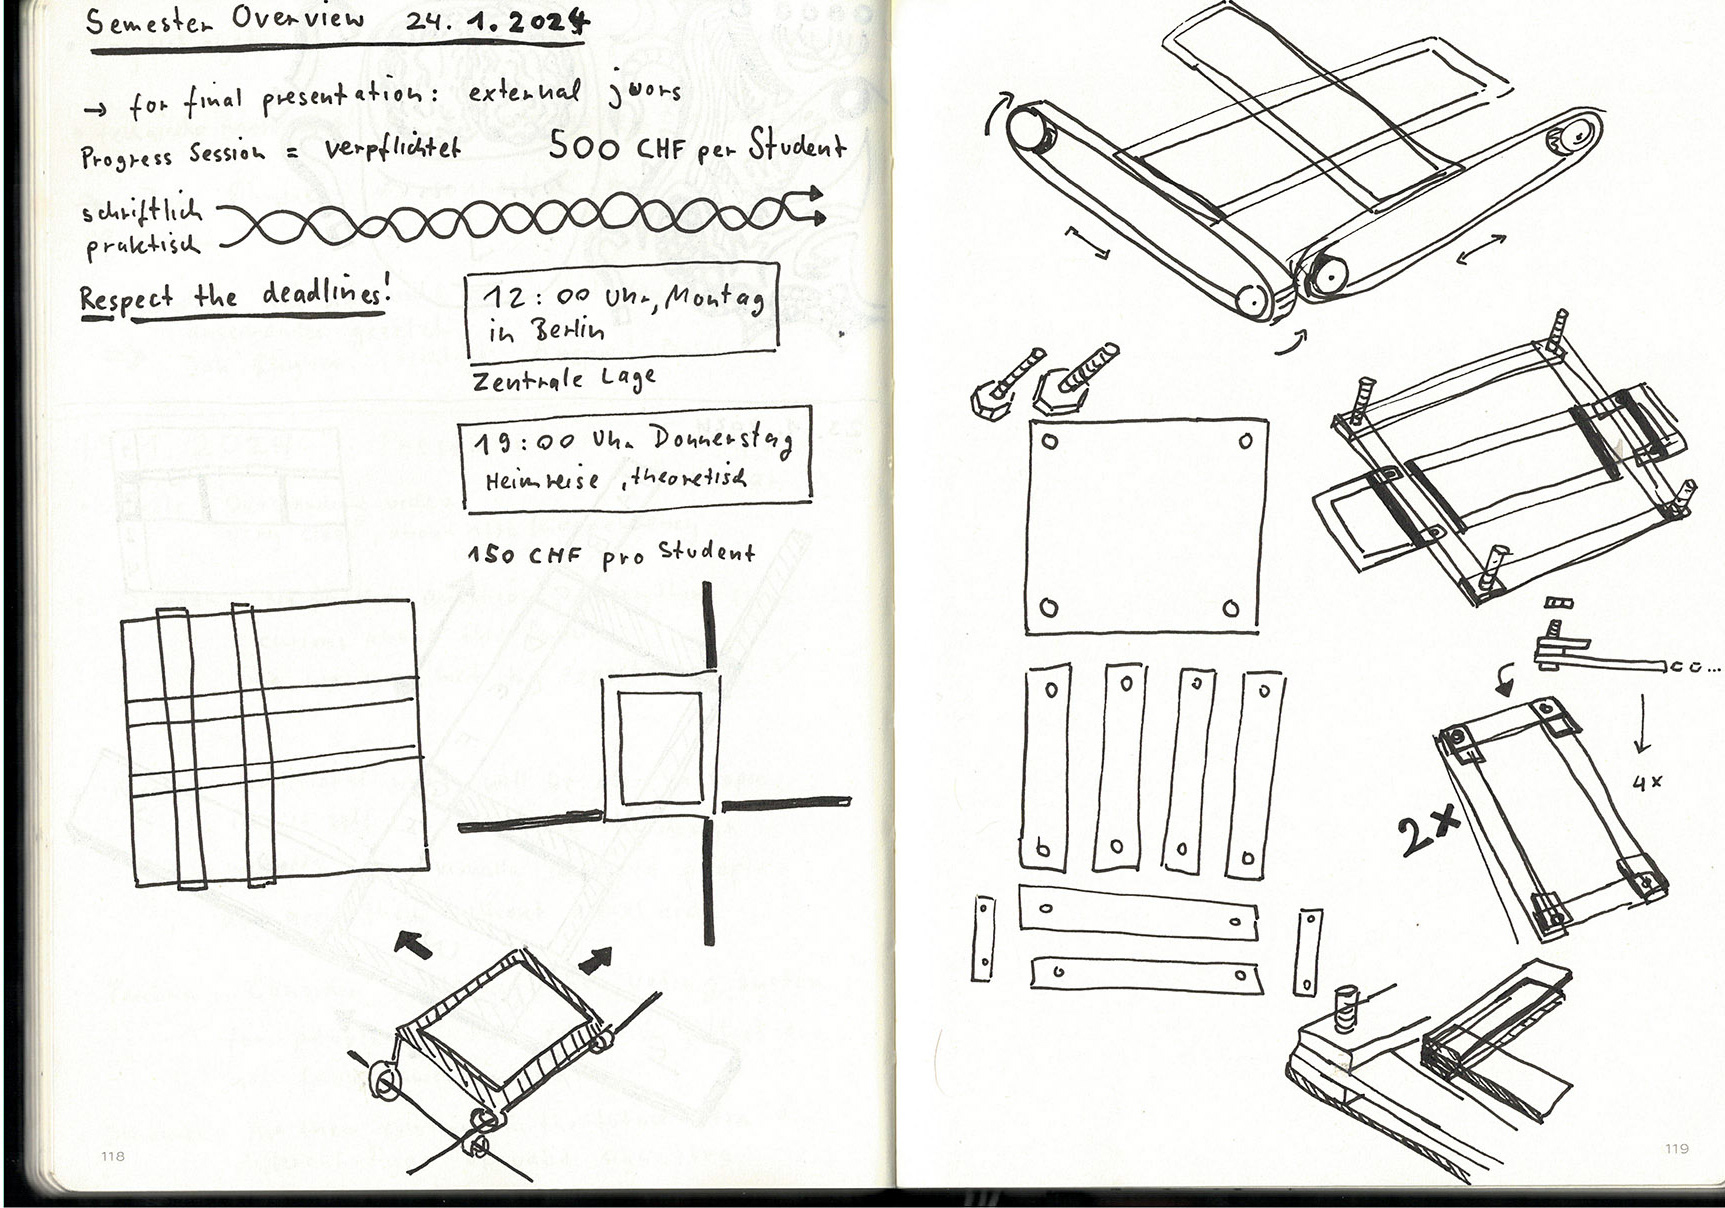 Semester Overview 24.1.2024
→ for final presentation: external jurors
Progress Session = verpflichtet 500 CHF per Student
schriftlich
praktisch
Respect the deadlines!
12:00 Uhr, Montag
in Berlin
Zentrale Lage
19:00 Uhr Donnerstag
Heimreise, theoretisch
150 CHF pro Student
118
4x
2x
119